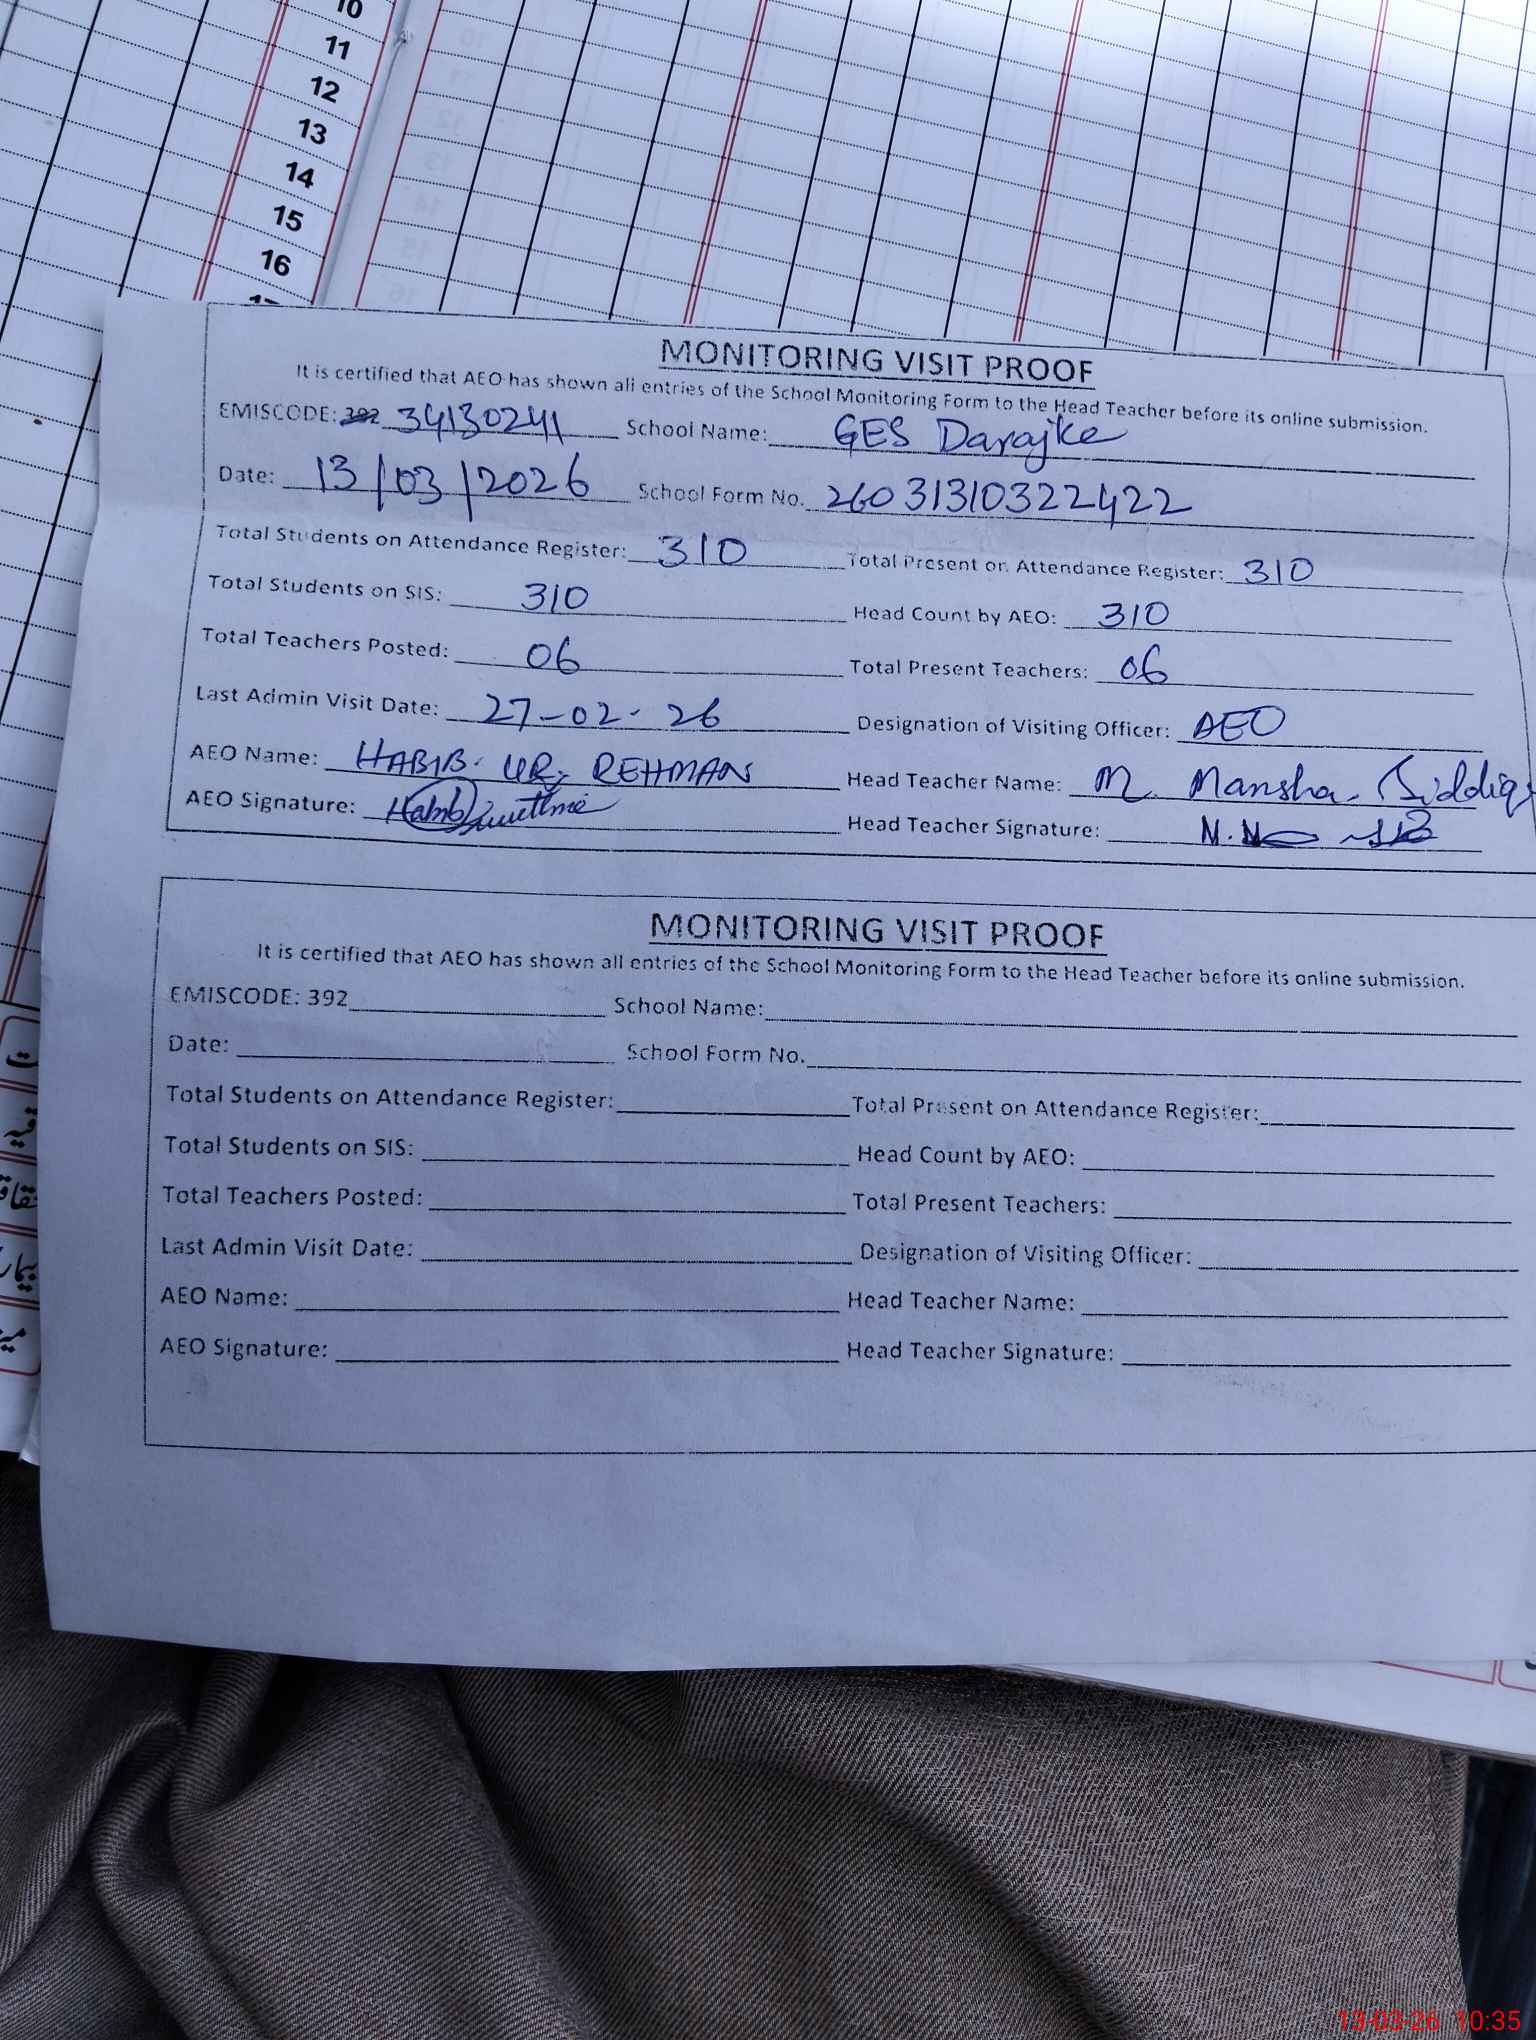 10
11
12
13
14
15
16
MONITORING VISIT PROOF
It is certified that AEO has shown all entries of the School Monitoring Form to the Head Teacher before its online submission.
EMISCODE: 392 34130241 School Name: GES Darajke
Date: 13/03/2026 School Form No. 26031310322422
Total Students on Attendance Register: 310 Total Present on Attendance Register: 310
Total Students on SIS: 310 Head Count by AEO: 310
Total Teachers Posted: 06 Total Present Teachers: 06
Last Admin Visit Date: 27-02-26 Designation of Visiting Officer: AEO
AEO Name: HABIB. UR, REHMAN Head Teacher Name: M. Mansha. Siddiq
AEO Signature: Head Teacher Signature:
MONITORING VISIT PROOF
It is certified that AEO has shown all entries of the School Monitoring Form to the Head Teacher before its online submission.
EMISCODE: 392 School Name:
Date: School Form No.
Total Students on Attendance Register: Total Present on Attendance Register:
Total Students on SIS: Head Count by AEO:
Total Teachers Posted: Total Present Teachers:
Last Admin Visit Date: Designation of Visiting Officer:
AEO Name: Head Teacher Name:
AEO Signature: Head Teacher Signature:
13-03-26 10:35